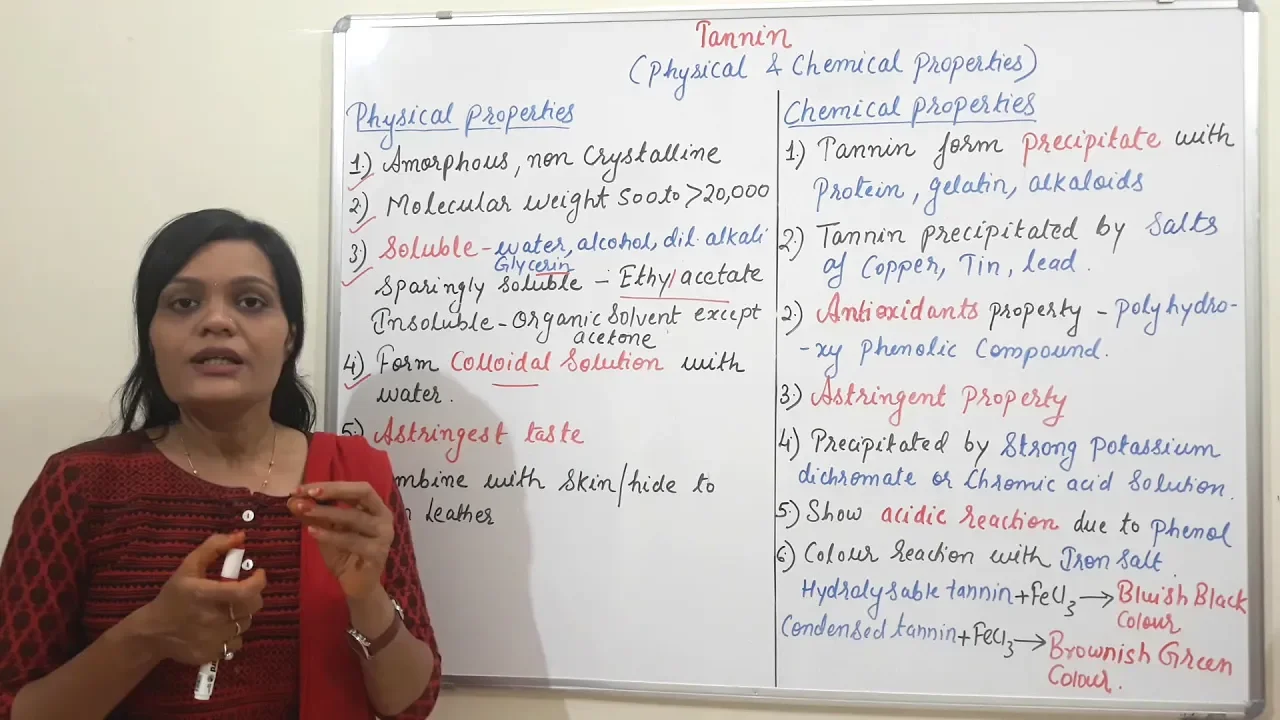 Tannin
(Physical & Chemical Properties)
Physical Properties
1.) Amorphous, non Crystalline
2.) Molecular weight 500 to >20,000
3.) Soluble - water, alcohol, dil. alkali
Glycerin
Sparingly soluble - Ethyl acetate
Insoluble - Organic Solvent except
acetone
4.) Form Colloidal Solution with
water.
5.) Astringest taste
mbine with Skin/hide to
Leather
Chemical properties
1.) Tannin form precipitate with
Protein, gelatin, alkaloids
2.) Tannin precipitated by Salts
of Copper, Tin, lead.
2.) Antioxidants property - polyhydro-
-xy Phenolic Compound.
3.) Astringent Property
4.) Precipitated by Strong Potassium
dichromate or Chromic acid Solution.
5.) Show acidic reaction due to Phenol
6.) Colour reaction with Iron Salt.
Hydralysable tannin + FeCl3 → Bluish Black
Colour
Condensed tannin + FeCl3 → Brownish Green
Colour.